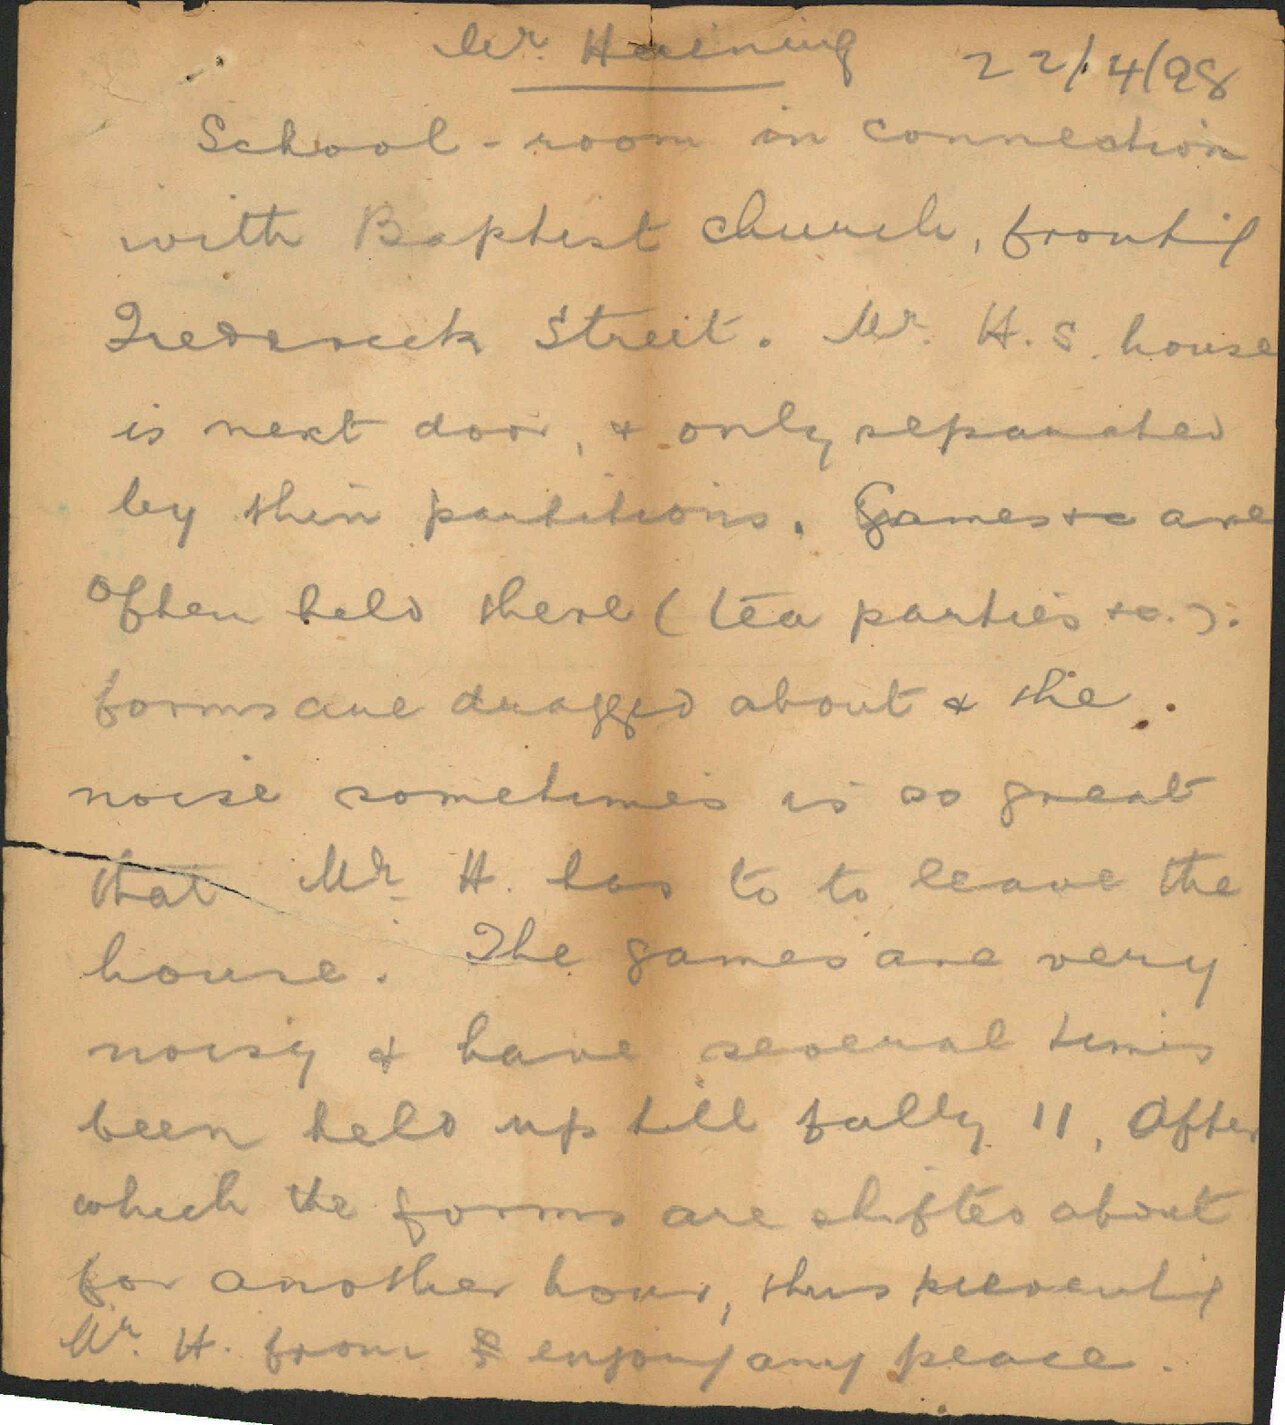 Mr. Haining 22/4/98
School-room in connection
with Baptist church, fronting
Frederick Street. Mr. H.s. house
is next door, & only separated
by thin partitions. Games &c are
often held there (tea parties &c.).
forms are dragged about & the
noise sometimes is so great
that Mr H. has to to leave the
house. The games are very
noisy & have several times
been held up till fully 11, After
which the forms are shifted about
for another hour, thus preventing
Mr. H. from enjoying any peace.